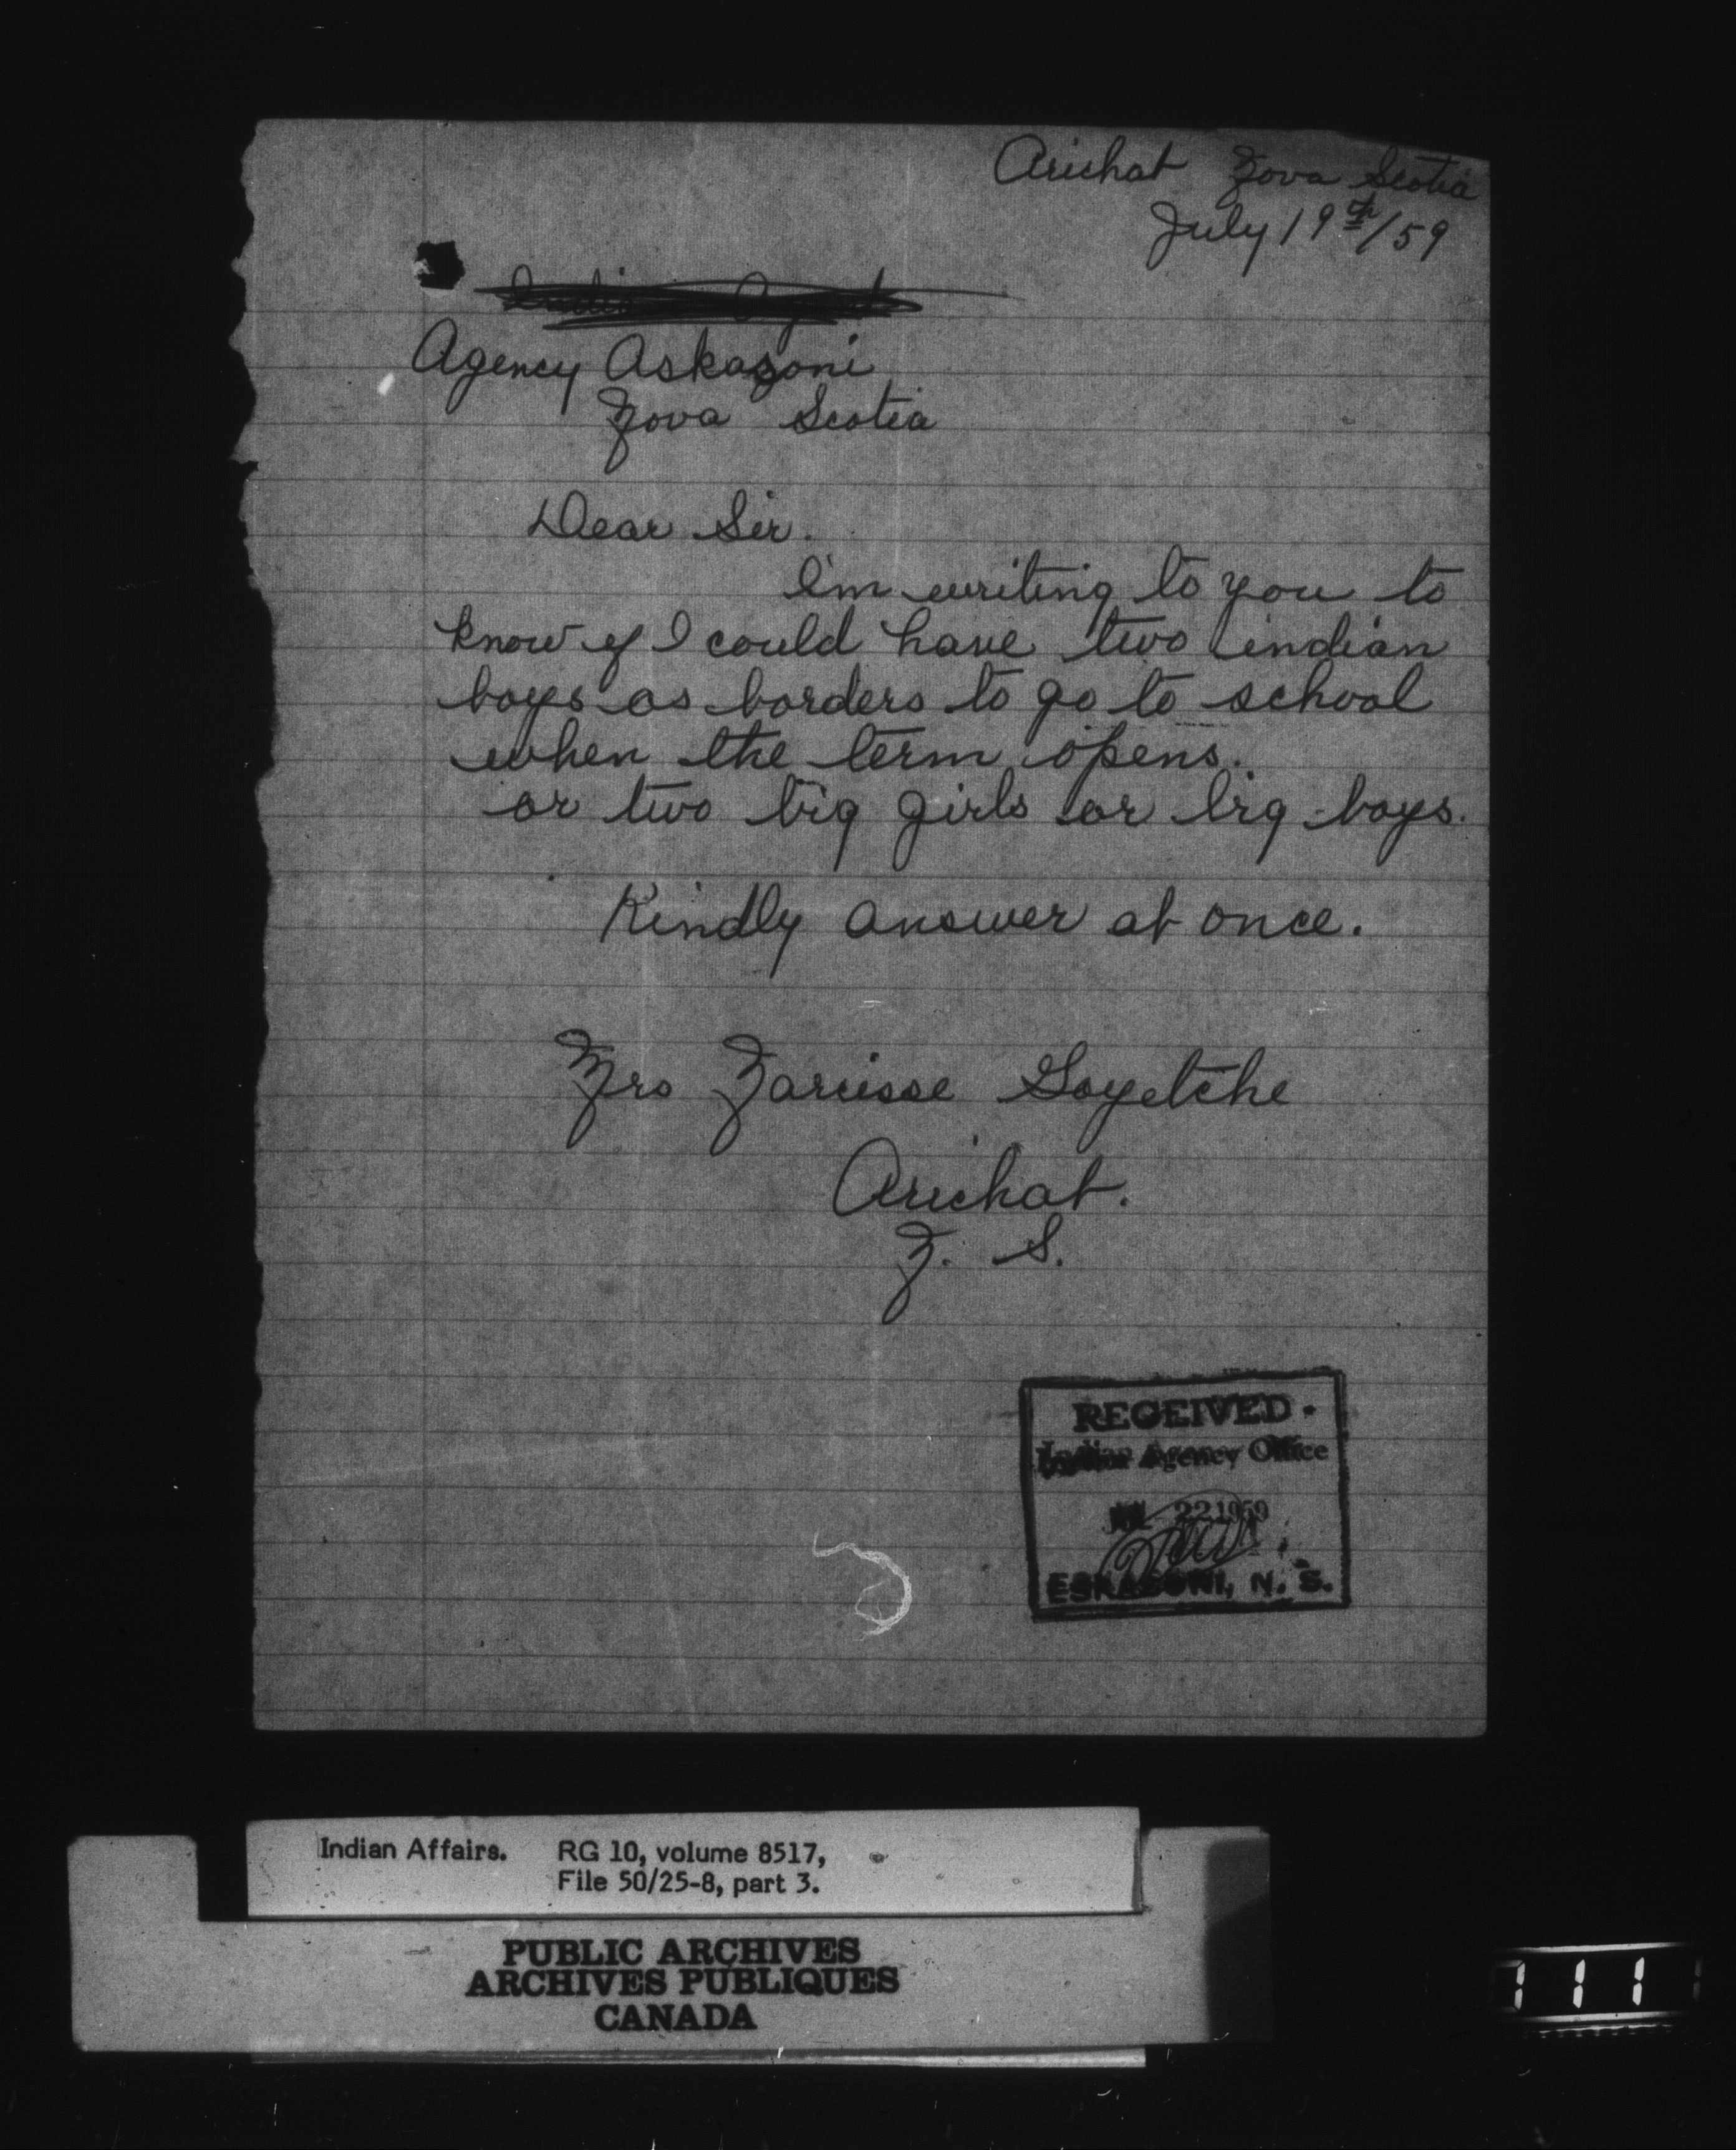 Arichat Nova Scotia
July 19th/59
Agency Askasoni
Nova Scotia
Dear Sir.
I'm writing to you to
know if I could have two indian
boys as borders to go to school
when the term opens.
or two big girls or big boys.
Kindly answer at once.
Mrs Narcisse Goyetche
Arichat.
N. S.
RECEIVED
Indian Agency Office
22 1959
ESKASONI, N. S.
Indian Affairs. RG 10, volume 8517,
File 50/25-8, part 3.
PUBLIC ARCHIVES
ARCHIVES PUBLIQUES
CANADA
111